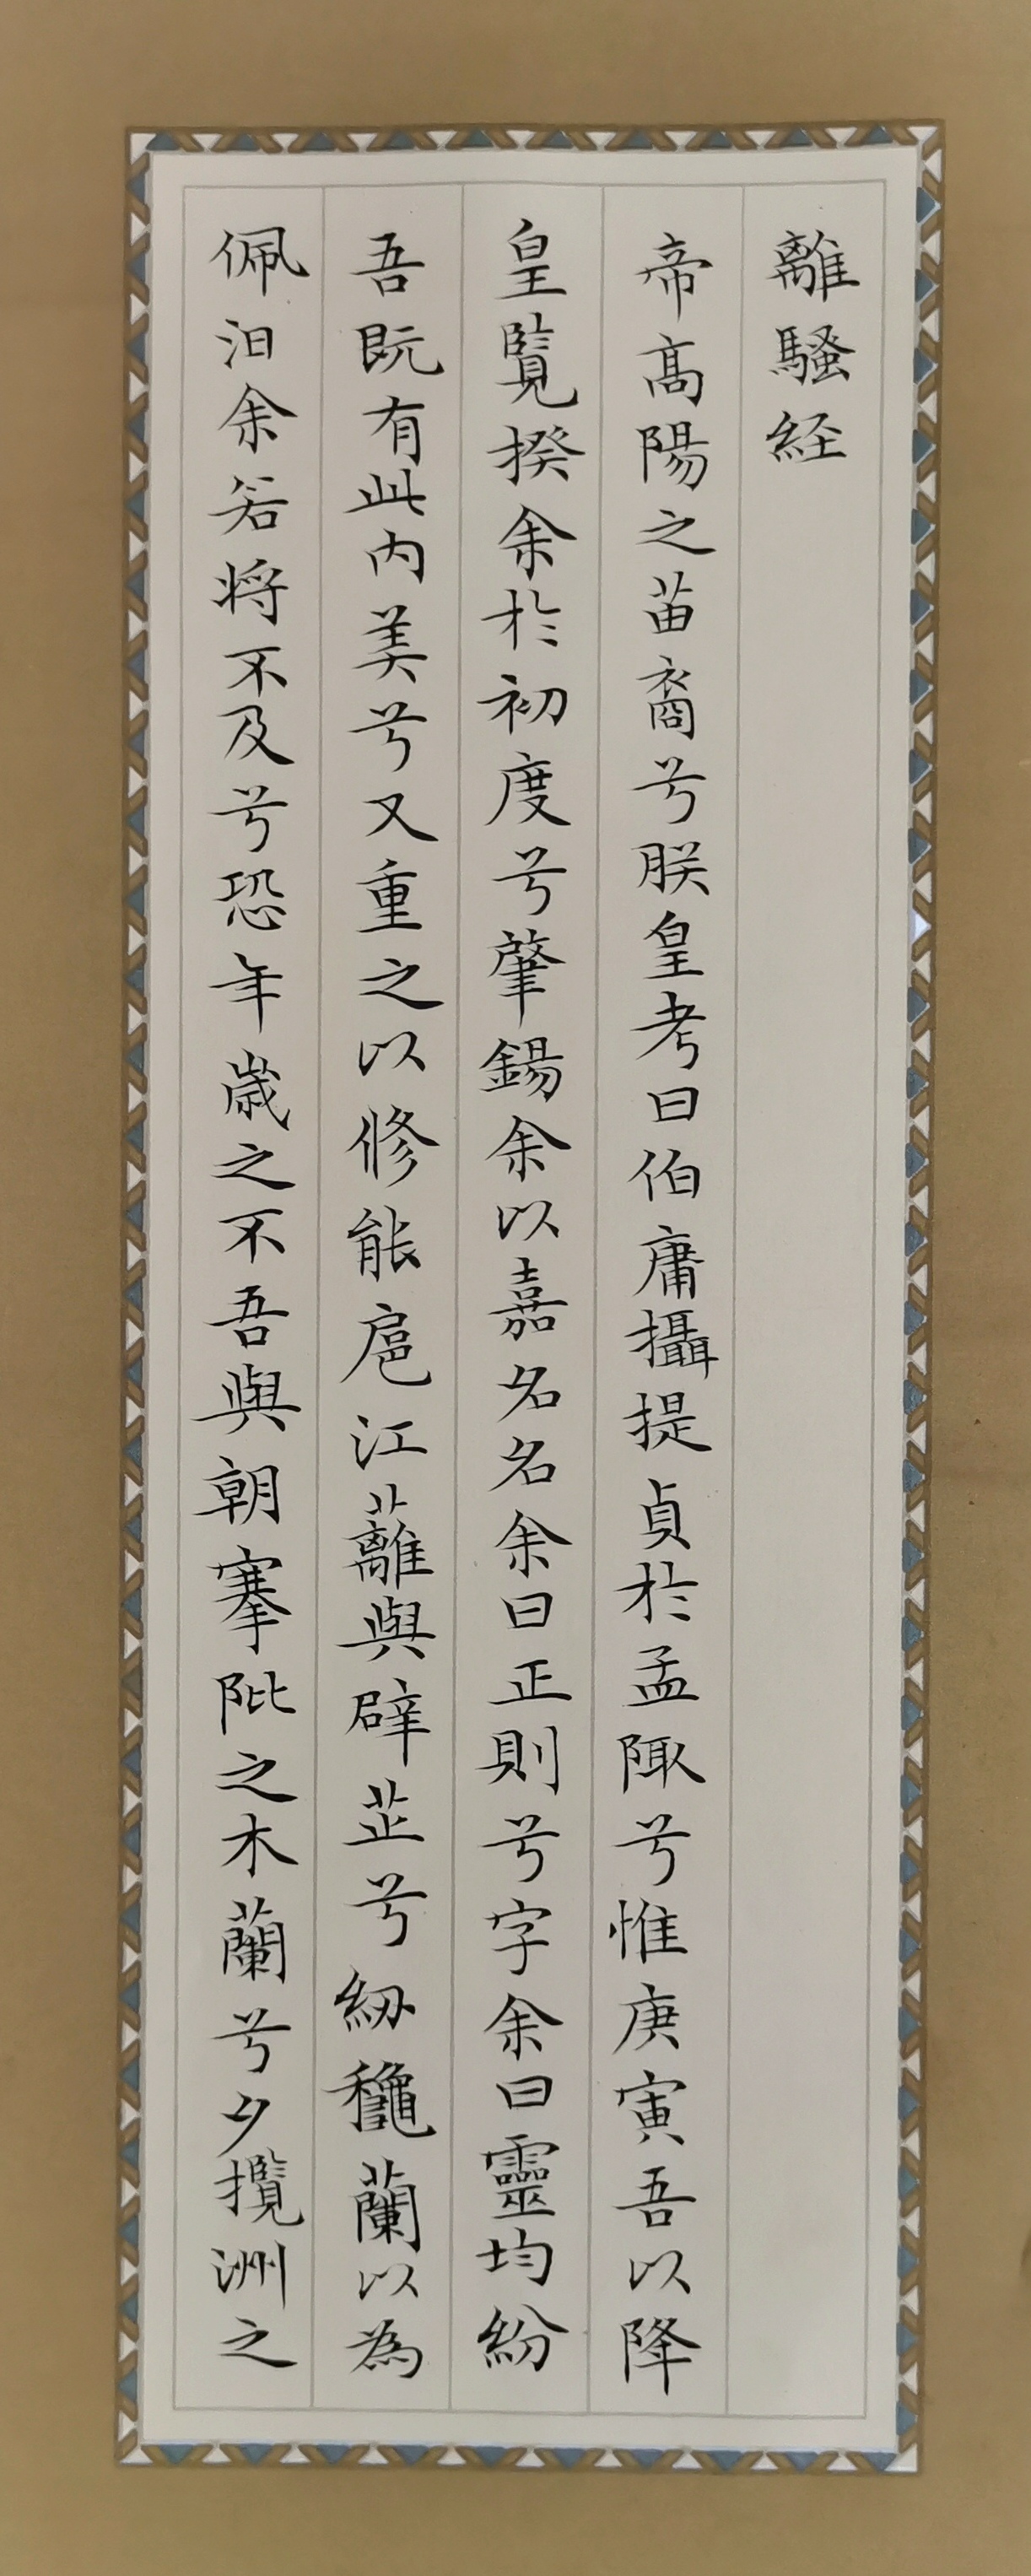 離騷経
帝高陽之苗裔兮朕皇考曰伯庸攝提貞於孟陬兮惟庚寅吾以降
皇覽揆余於初度兮肇錫余以嘉名名余曰正則兮字余曰靈均紛
吾既有此內美兮又重之以修能扈江蘺與辟芷兮紉穐蘭以為
佩汩余若将不及兮恐年歲之不吾與朝搴阰之木蘭兮夕攬洲之